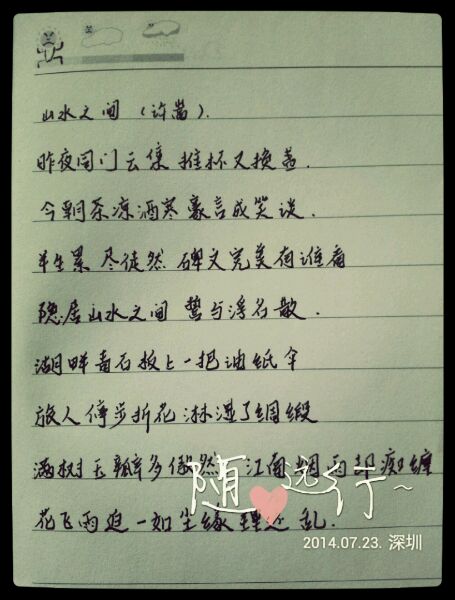 山水之间（许嵩）.
昨夜同门云集 推杯又换盏.
今朝茶凉酒寒 豪言成笑谈.
半生累 尽徒然 碑文完美有谁看
隐居山水之间 誓与浮名散.
湖畔青石板上一把油纸伞
旅人停步折花 淋湿了绸缎
满树玉瓣多傲然 江南烟雨却痴缠
花飞雨追一如尘缘理还乱.
随远行~
2014.07.23. 深圳